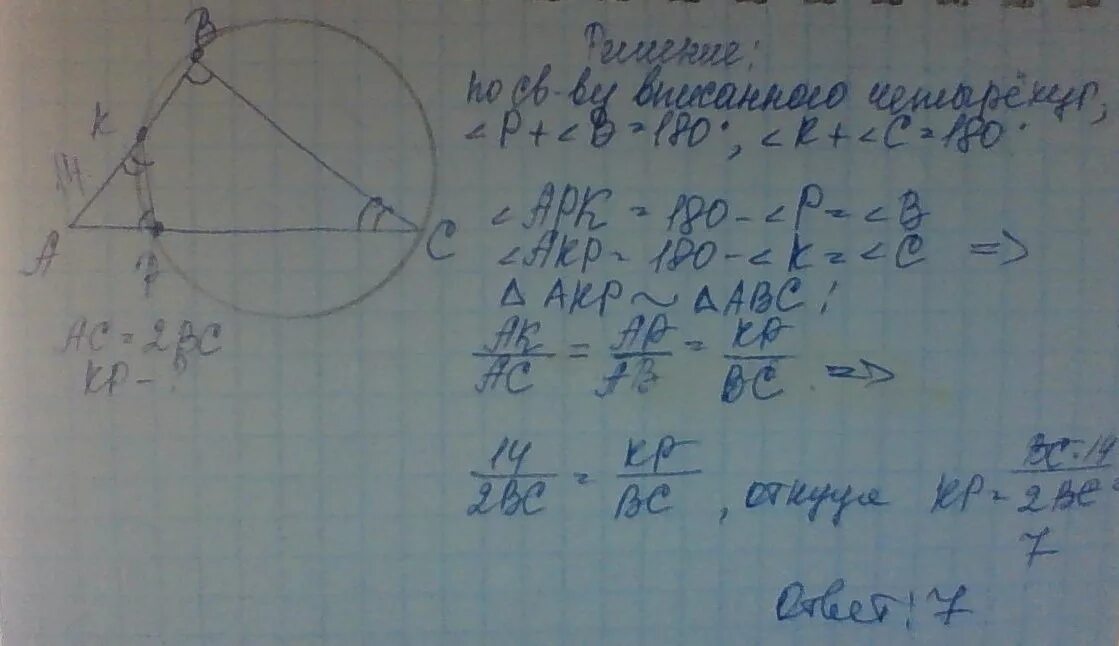 B
K
14
A
C
AC = 2BC
KP - ?
Решение:
по св-ву вписанного четырёхуг,
∠P + ∠B = 180°, ∠K + ∠C = 180°
∠APK = 180 - ∠P = ∠B
∠AKP = 180 - ∠K = ∠C =>
△ AKP ~ △ABC;
AK/AC = AP/AB = KP/BC =>
14/2BC = KP/BC, откуда KP = BC·14/2BC =
7
Ответ: 7